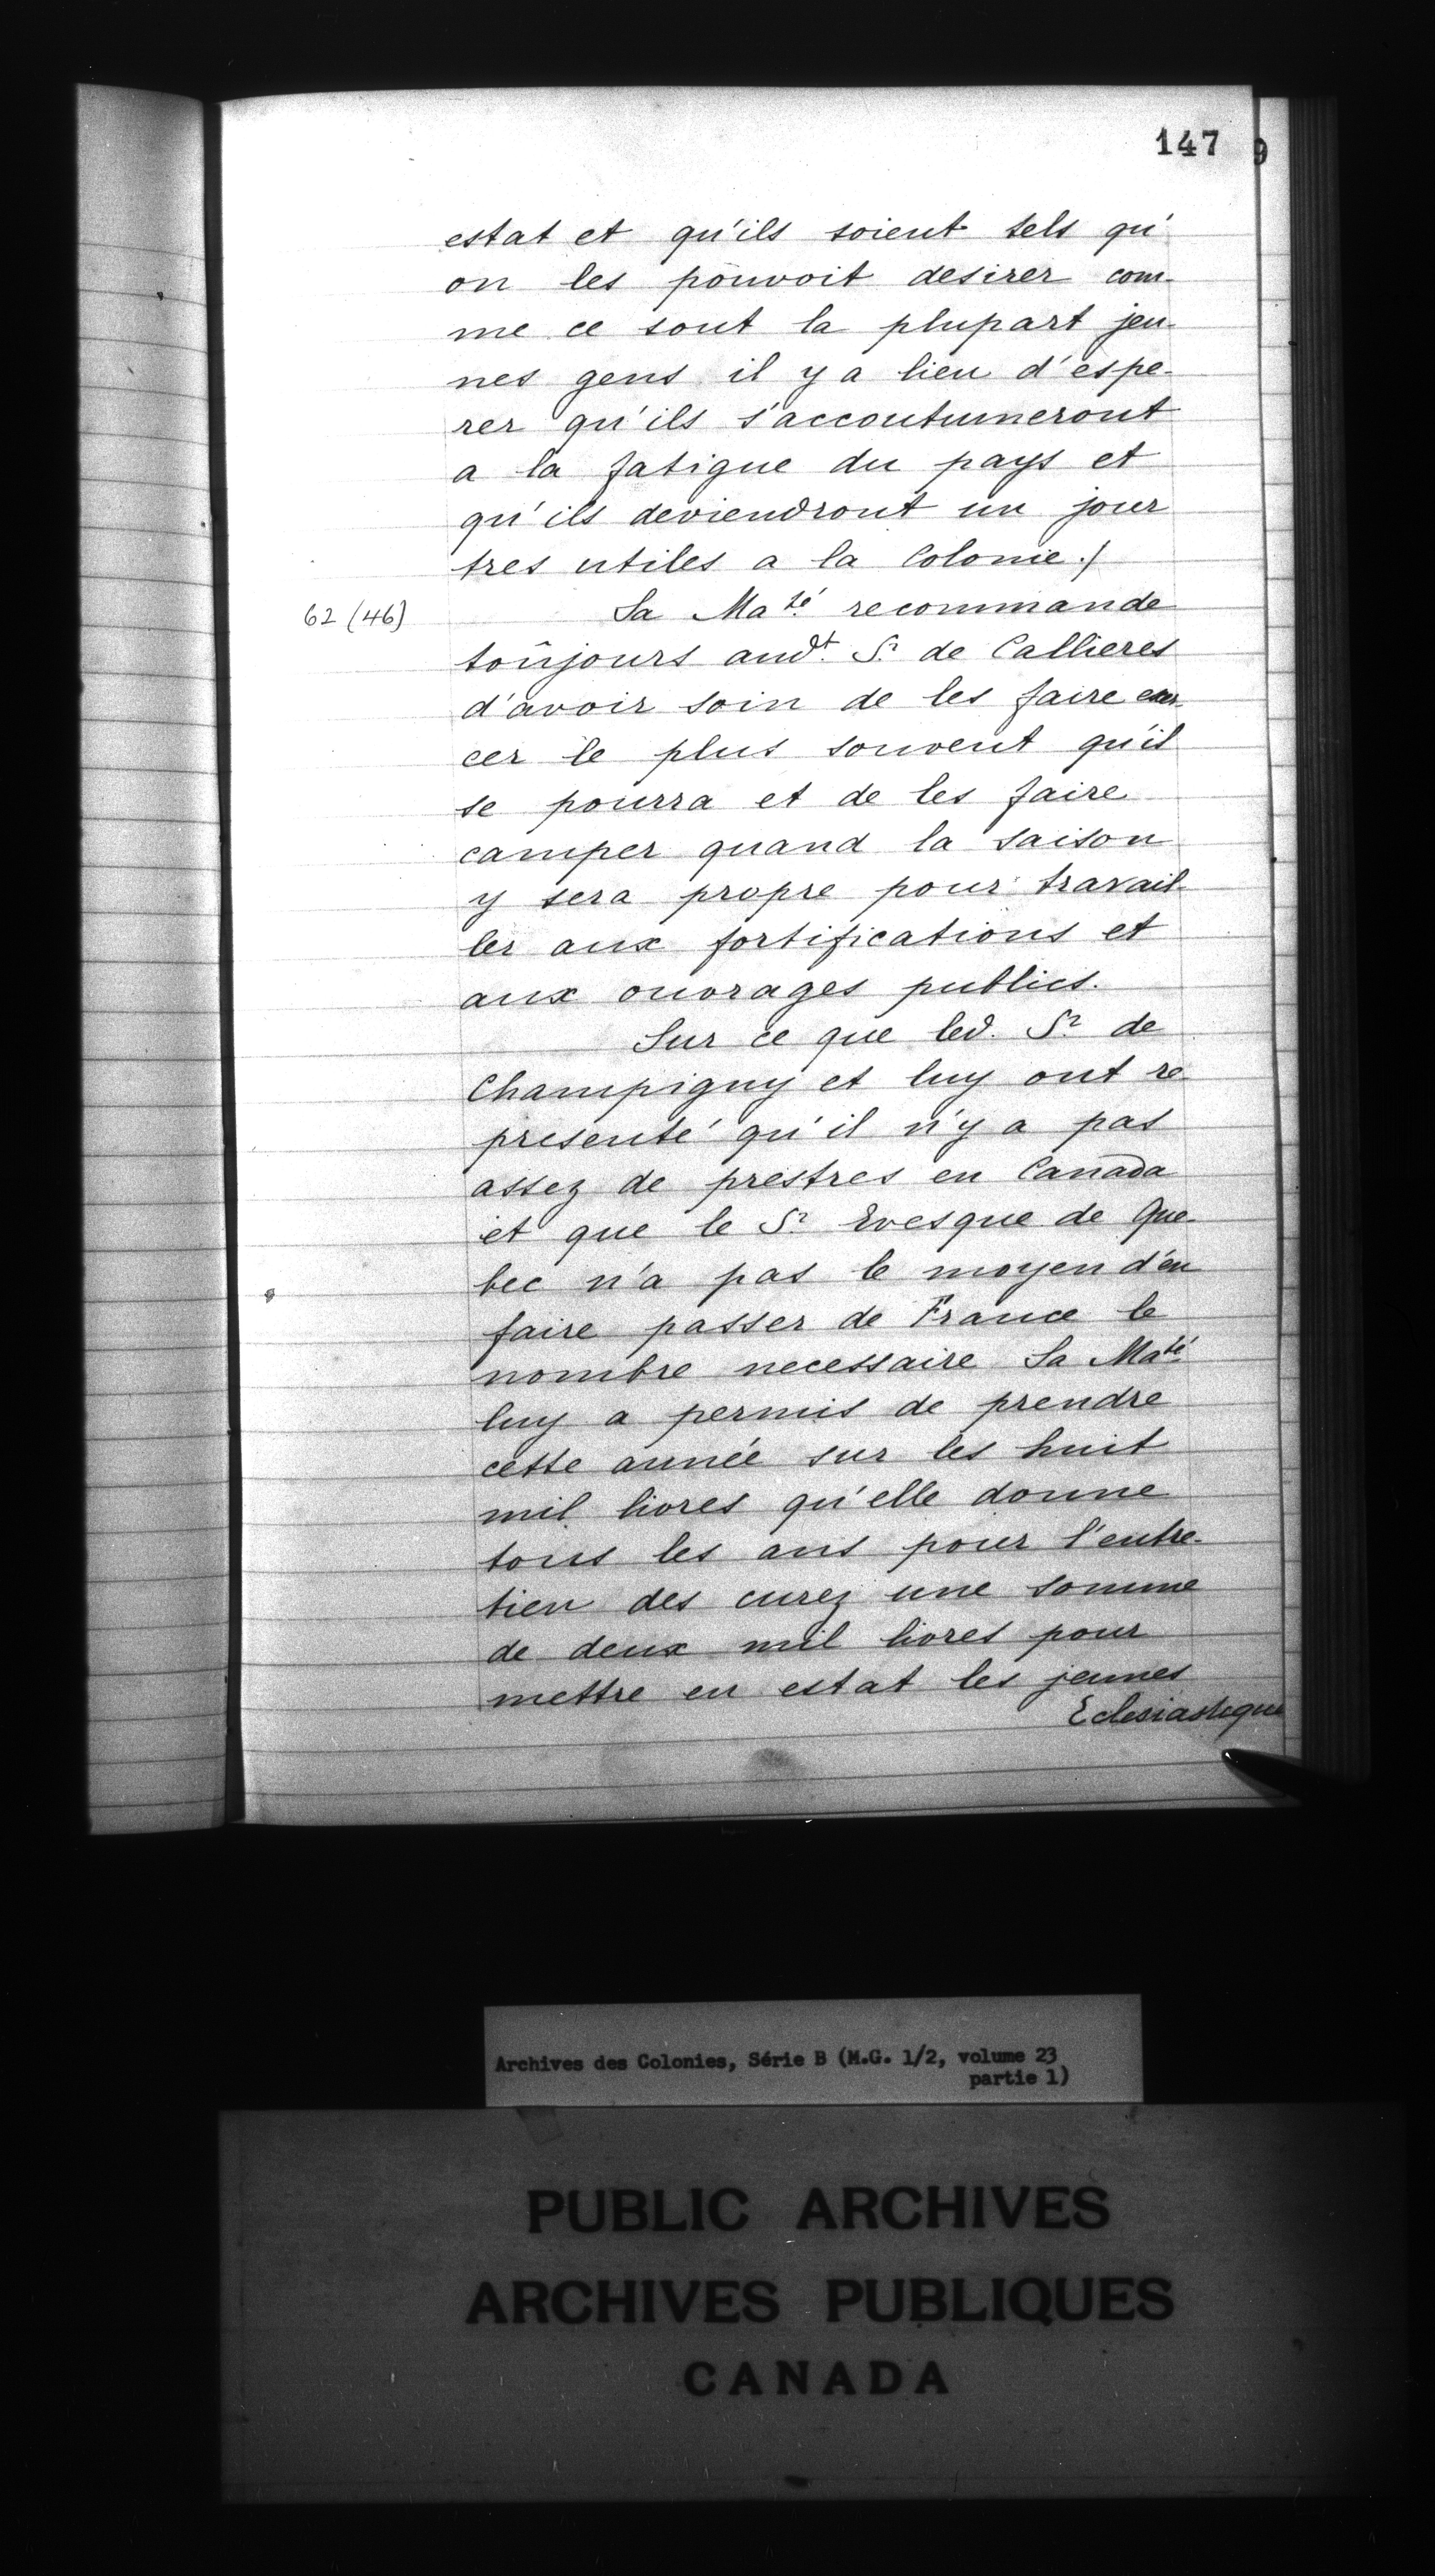 147 9
estat et qu'ils soient tels qu'
on les pouvoit desirer com-
me ce sont la plupart jeu-
nes gens il y a lieu d'espe-
rer qu'ils s'accoutumeront
a la fatigue du pays et
qu'ils deviendront un jour
tres utiles a la Colonie ./
62 (46)
Sa Ma.té recommande
toûjours aud.t S.r de Callieres
d'avoir soin de les faire exer
cer le plus souvent qu'il
se pourra et de les faire
camper quand la saison
y sera propre pour travail-
ler aux fortifications et
aux ouvrages publics.
Sur ce que led. S.r de
Champigny et luy ont re-
presenté qu'il n'y a pas
assez de prestres en Canada
et que le S.r Evesque de Que-
bec n'a pas le moyen d'en
faire passer de France le
nombre necessaire Sa Ma.té
luy a permis de prendre
cette année sur les huit
mil livres qu'elle donne
tous les ans pour l'entre-
tien des curez une somme
de deux mil livres pour
mettre en estat les jeunes
Eclesiastique
Archives des Colonies, Série B (M.G. 1/2, volume 23
partie 1)
PUBLIC ARCHIVES
ARCHIVES PUBLIQUES
CANADA